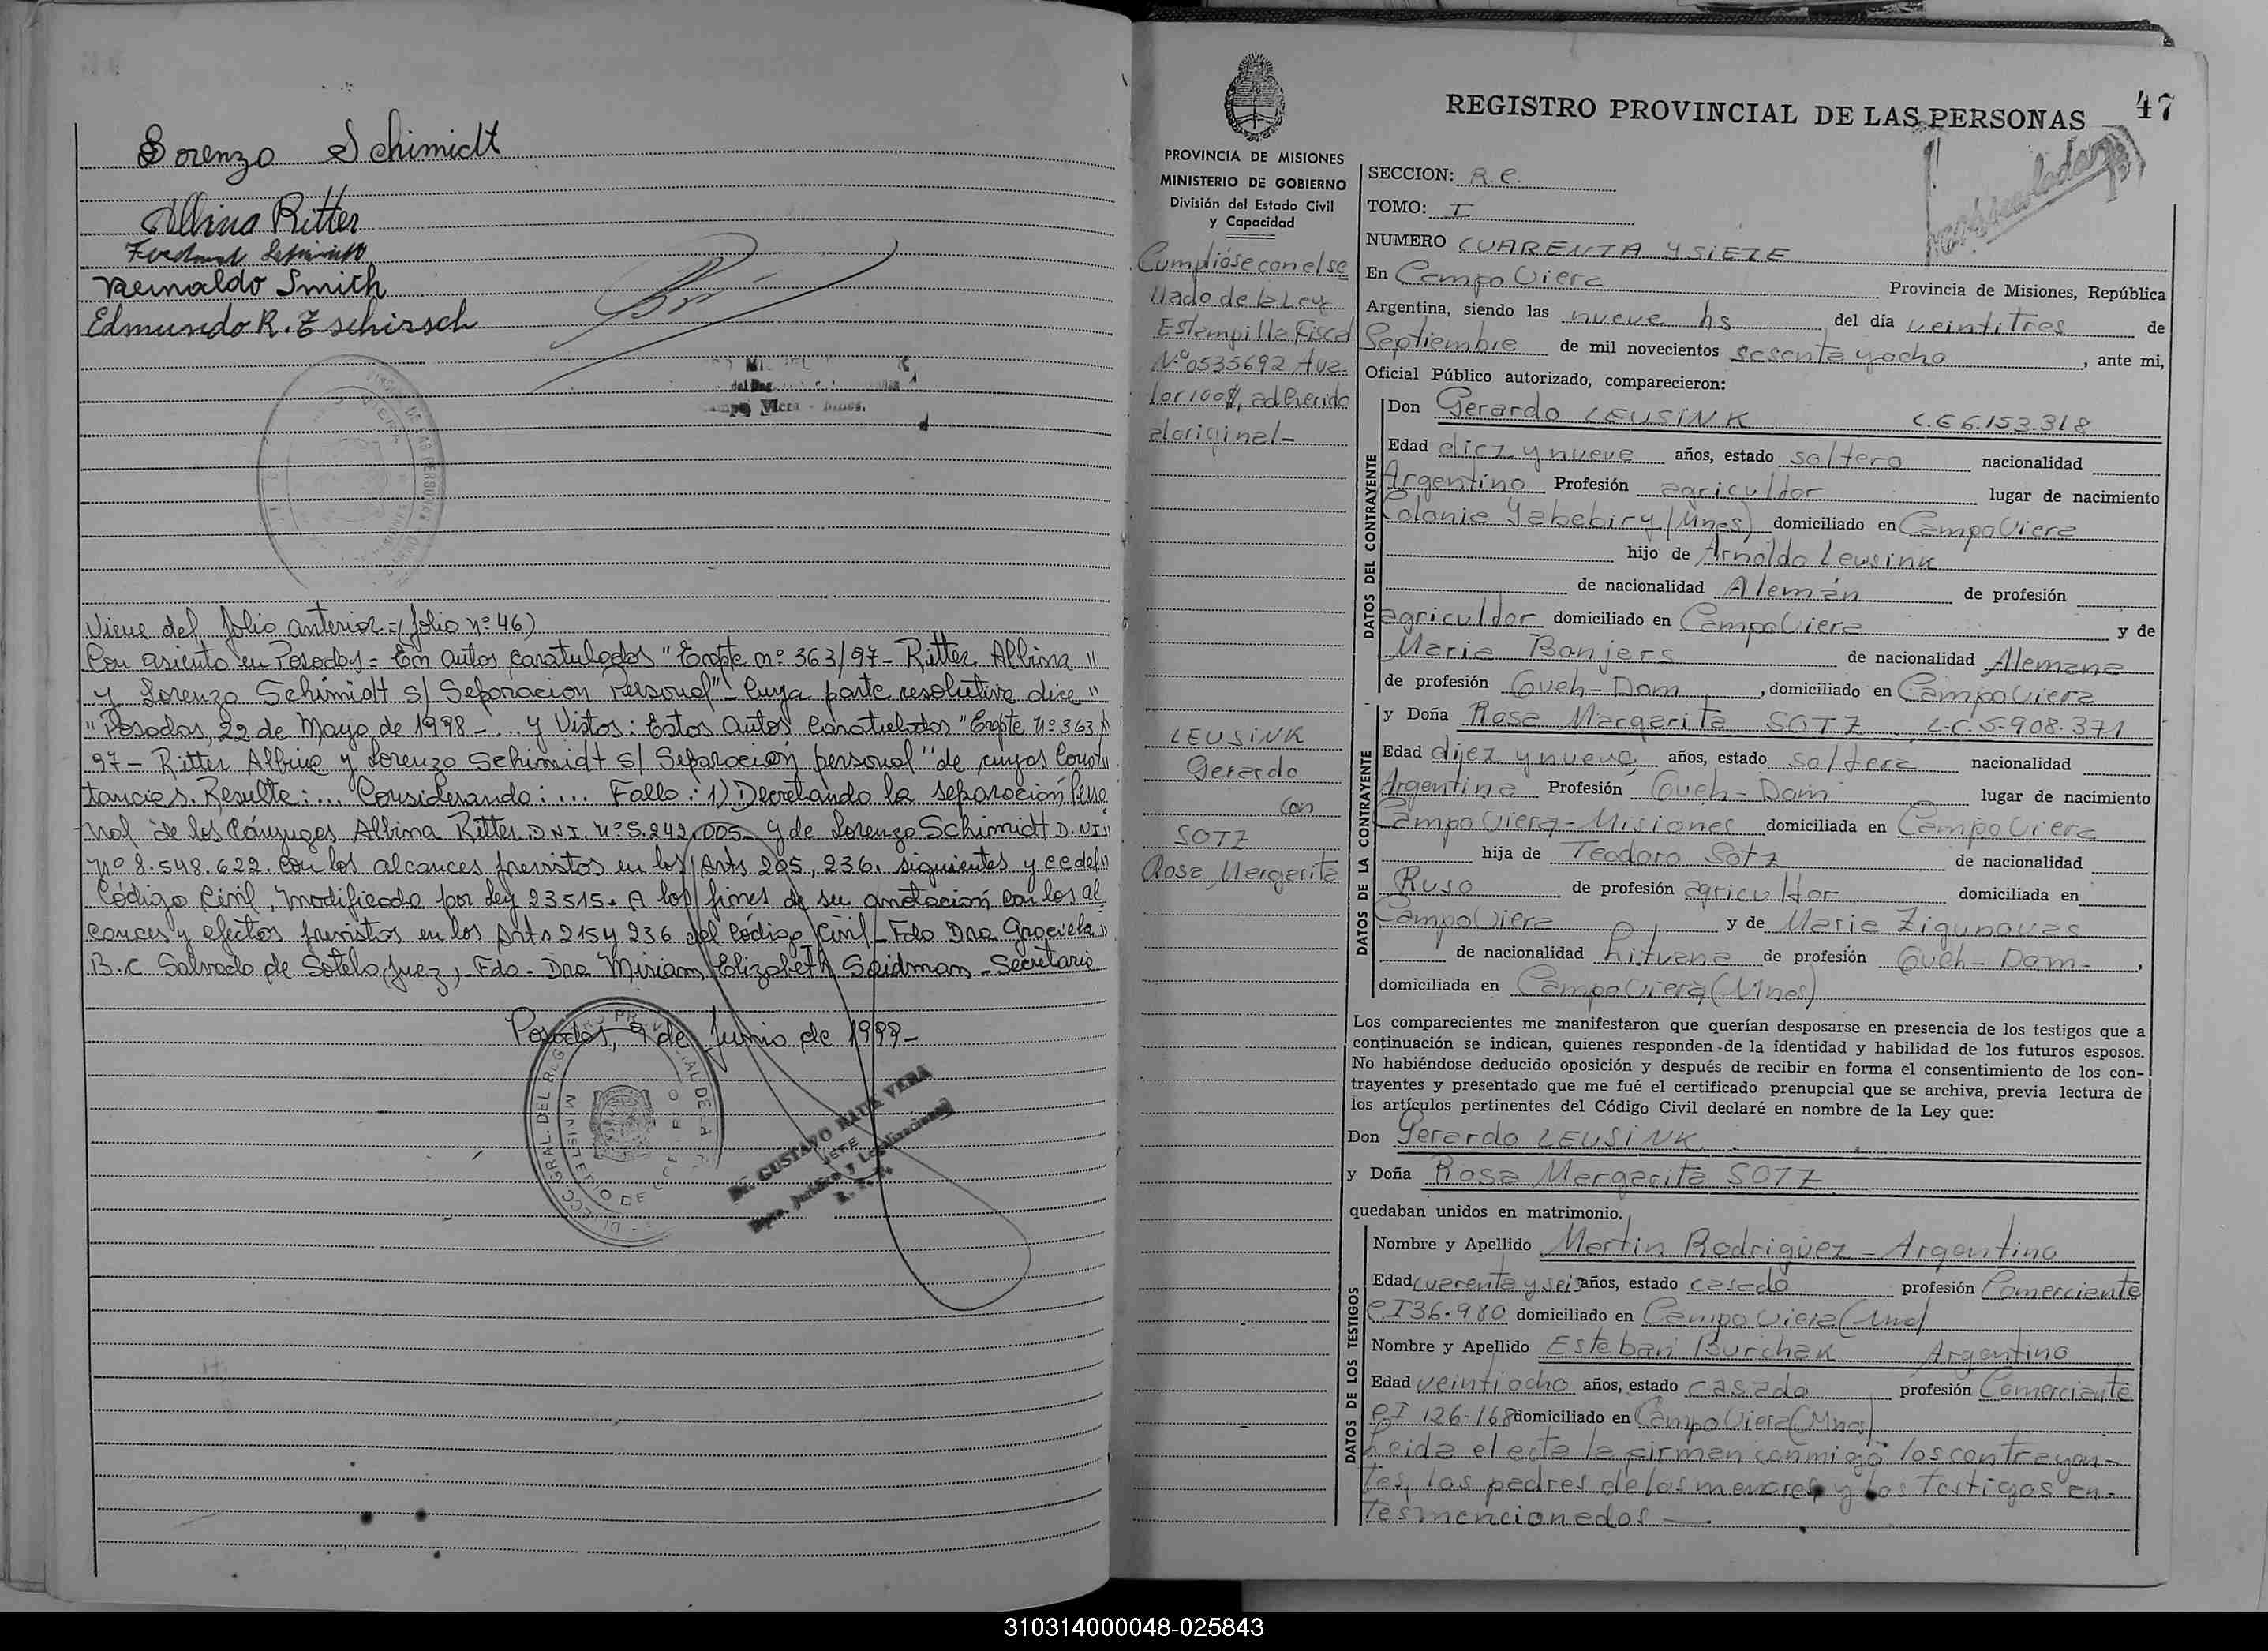 Lorenzo Schimidt
Albina Ritter
Reinaldo Smith
Edmundo R. Tschirsch
Viene del folio anterior = (folio nº 46)
Con asiento en Posadas = En autos caratulados "Expte nº 363/97 - Ritter Albina "
y Lorenzo Schimidt s/ Separacion Personal" - Cuya parte resolutiva dice "
"Posadas, 22 de Mayo de 1998 - ... y Vistos: Estos Autos Caratulados "Expte Nº 363/
97 - Ritter Albina y Lorenzo Schimidt s/ Separacion personal" de cuyas Cons
tancias. Resulta: ... Considerando: ... Fallo: 1) Decretando la separación Perso
nal de los Cónyuges Albina Ritter D.N.I. nº 5.242.005 - y de Lorenzo Schimidt D.N.I
nº 8.548.622. con los alcances previstos en los Arts 205, 236. siguientes y cc del
Código Civil, modificado por ley 23515. A los fines de su anotacion con los al
cances y efectos previstos en los Arts 215 y 236 del Código Civil - Fdo Dra Graciela
B. C Salvado de Sotelo (Juez) - Fdo - Dra Miriam Elizabeth Seidman - Secretaria
Posadas, 9 de Junio de 1998 -
Dr. GUSTAVO RAUL VERA
JEFE
Dpto. Jurídico y Legalizaciones
47
REGISTRO PROVINCIAL DE LAS PERSONAS
PROVINCIA DE MISIONES
MINISTERIO DE GOBIERNO
División del Estado Civil
y Capacidad
Cumplióse con el se
llado de la Ley
Estampilla Fiscal
Nº 0535692 A va-
lor 100$, adherido
al original -
LEUSINK
Gerardo
con
SOTZ
Rosa Margarita
SECCION: R.C.
TOMO: I
NUMERO CUARENTA Y SIETE
En Campo Viera Provincia de Misiones, República
Argentina, siendo las nueve hs del día veintitres de
Septiembre de mil novecientos sesenta y ocho, ante mi,
Oficial Público autorizado, comparecieron:
DATOS DEL CONTRAYENTE
Don Gerardo LEUSINK C.E 6.153.318
Edad diez y nueve años, estado soltero nacionalidad
Argentino Profesión agricultor lugar de nacimiento
Colonia Yabebiry (Mnes) domiciliado en Campo Viera
hijo de Arnoldo Leusink
de nacionalidad Alemán de profesión
agricultor domiciliado en Campo Viera y de
Maria Banjers de nacionalidad Alemana
de profesión Queh-Dom, domiciliado en Campo Viera
DATOS DE LA CONTRAYENTE
y Doña Rosa Margarita SOTZ L.C. 5.908.371
Edad diez y nueve años, estado soltera nacionalidad
Argentina Profesión Queh-Dom lugar de nacimiento
Campo Viera-Misiones domiciliada en Campo Viera
hija de Teodoro Sotz de nacionalidad
Ruso de profesión agricultor domiciliada en
Campo Viera y de Maria Zigunovas
de nacionalidad Lituana de profesión Queh-Dom-,
domiciliada en Campo Viera (Mnes)
Los comparecientes me manifestaron que querían desposarse en presencia de los testigos que a
continuación se indican, quienes responden de la identidad y habilidad de los futuros esposos.
No habiéndose deducido oposición y después de recibir en forma el consentimiento de los con-
trayentes y presentado que me fué el certificado prenupcial que se archiva, previa lectura de
los artículos pertinentes del Código Civil declaré en nombre de la Ley que:
Don Gerardo LEUSINK
y Doña Rosa Margarita SOTZ
quedaban unidos en matrimonio.
DATOS DE LOS TESTIGOS
Nombre y Apellido Martin Rodriguez - Argentino
Edad cuarenta y seis años, estado casado profesión Comerciante
C.I 36.980 domiciliado en Campo Viera (Mnes)
Nombre y Apellido Esteban Burchak Argentino
Edad veintiocho años, estado casado profesión Comerciante
C.I 126-168 domiciliado en Campo Viera (Mnes)
Leida el acta la firman conmigo los contrayen-
tes, los padres de los menores y los testigos an-
tes mencionados -
310314000048-025843